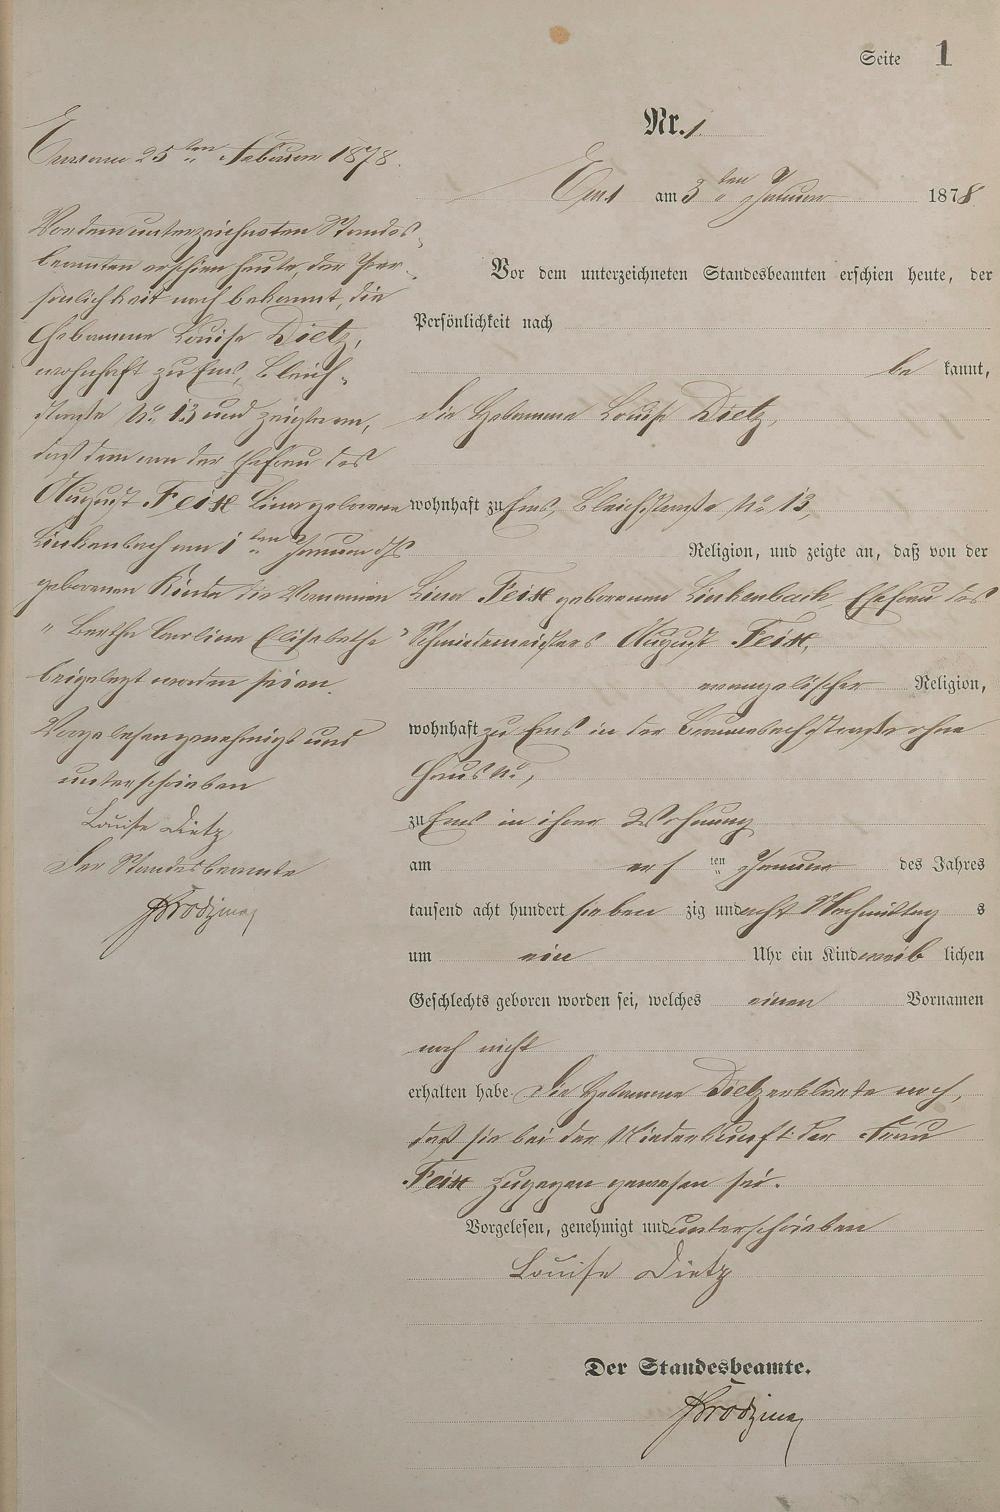 Seite 1
Nr. 1
Ems am 3ten Januar 1878
Vor dem unterzeichneten Standesbeamten erschien heute, der
Persönlichkeit nach
be kannt,
die Hebamme Louise Dietz,
wohnhaft zu Ems, Bleichstraße No 13,
Religion, und zeigte an, daß von der
Lina Feix geborenen Linkenbach, Ehefrau des
Schmiedemeisters August Feix,
evangelischer Religion,
wohnhaft zu Ems in der Braunebachstraße ohne
Haus No,
zu Ems in ihrer Wohnung
am ersten Januar des Jahres
tausend acht hundert sieben zig und acht Nachmittag s
um ein Uhr ein Kind weib lichen
Geschlechts geboren worden sei, welches einen Vornamen
noch nicht
erhalten habe. Die Hebamme Dietz erklärte noch,
daß sie bei der Niederkunft der Frau
Feix zugegen gewesen sei.
Vorgelesen, genehmigt und unterschrieben
Louise Dietz
Der Standesbeamte.
Ems am 25ten Februar 1878.
Vor dem unterzeichneten Standes-
beamten erschien heute, der Per-
sönlichkeit nach bekannt, die
Hebamme Louise Dietz,
wohnhaft zu Ems, Bleich-
straße No. 13 und zeigte an,
daß dem von der Ehefrau des
August Feix Lina geborene
Linkenbach am 1ten Januar d Js
geborenen Kinde die Vornamen
"Bertha Carline Elisabethe"
beigelegt worden seien.
Vorgelesen genehmigt und
unterschrieben
Louise Dietz
Der Standesbeamte